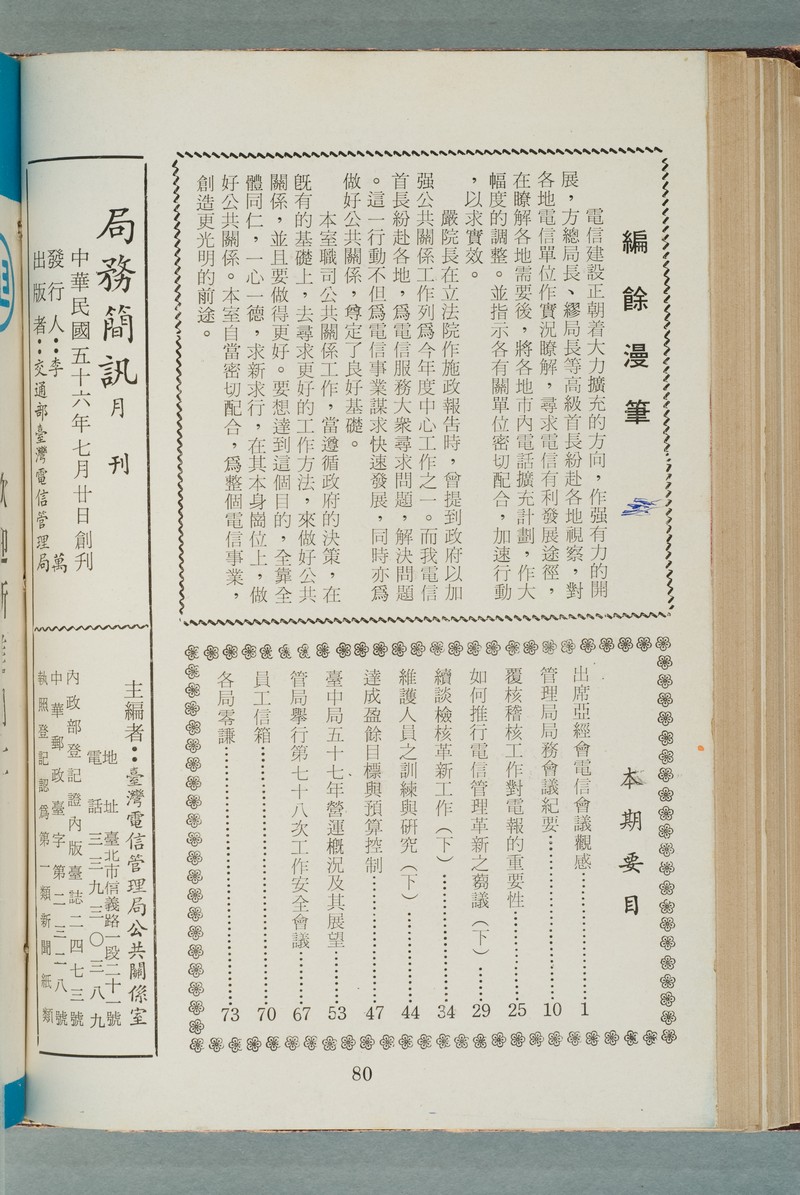 編餘漫筆
電信建設正朝着大力擴充的方向，作强有力的開
展，方總局長、繆局長等高級首長紛赴各地視察，對
各地電信單位作實況瞭解，尋求電信有利發展途徑，
在瞭解各地需要後，將各地市內電話擴充計劃，作大
幅度的調整。並指示各有關單位密切配合，加速行動
，以求實效。
嚴院長在立法院作施政報告時，曾提到政府以加
强公共關係工作列爲今年度中心工作之一。而我電信
首長紛赴各地，爲電信服務大衆尋求問題，解決問題
。這一行動不但爲電信事業謀求快速發展，同時亦爲
做好公共關係，尊定了良好基礎。
本室職司公共關係工作，當遵循政府的決策，在
旣有的基礎上，去尋求更好的工作方法，來做好公共
關係，並且要做得更好。要想達到這個目的，全靠全
體同仁，一心一德，求新求行，在其本身崗位上，做
好公共關係。本室自當密切配合，爲整個電信事業，
創造更光明的前途。
本期要目
出席亞經會電信會議觀感…………1
管理局局務會議紀要…………10
覆核稽核工作對電報的重要性…………25
如何推行電信管理革新之蒭議（下）……29
續談檢核革新工作（下）…………34
維護人員之訓練與研究（下）…………44
達成盈餘目標與預算控制…………47
臺中局五十七年營運概況及其展望……53
管局舉行第七十八次工作安全會議……67
員工信箱…………70
各局零謙…………73
局務簡訊月刊
中華民國五十六年七月廿日創刊
發行人：李萬
出版者：交通部臺灣電信管理局
主編者：臺灣電信管理局公共關係室
地址 臺北市信義路一段二十一號
電話 三三九三〇三八九
內政部登記證內版臺誌二四七三號
中華郵政臺字第二三二八號
執照登記認爲第一類新聞紙類
80